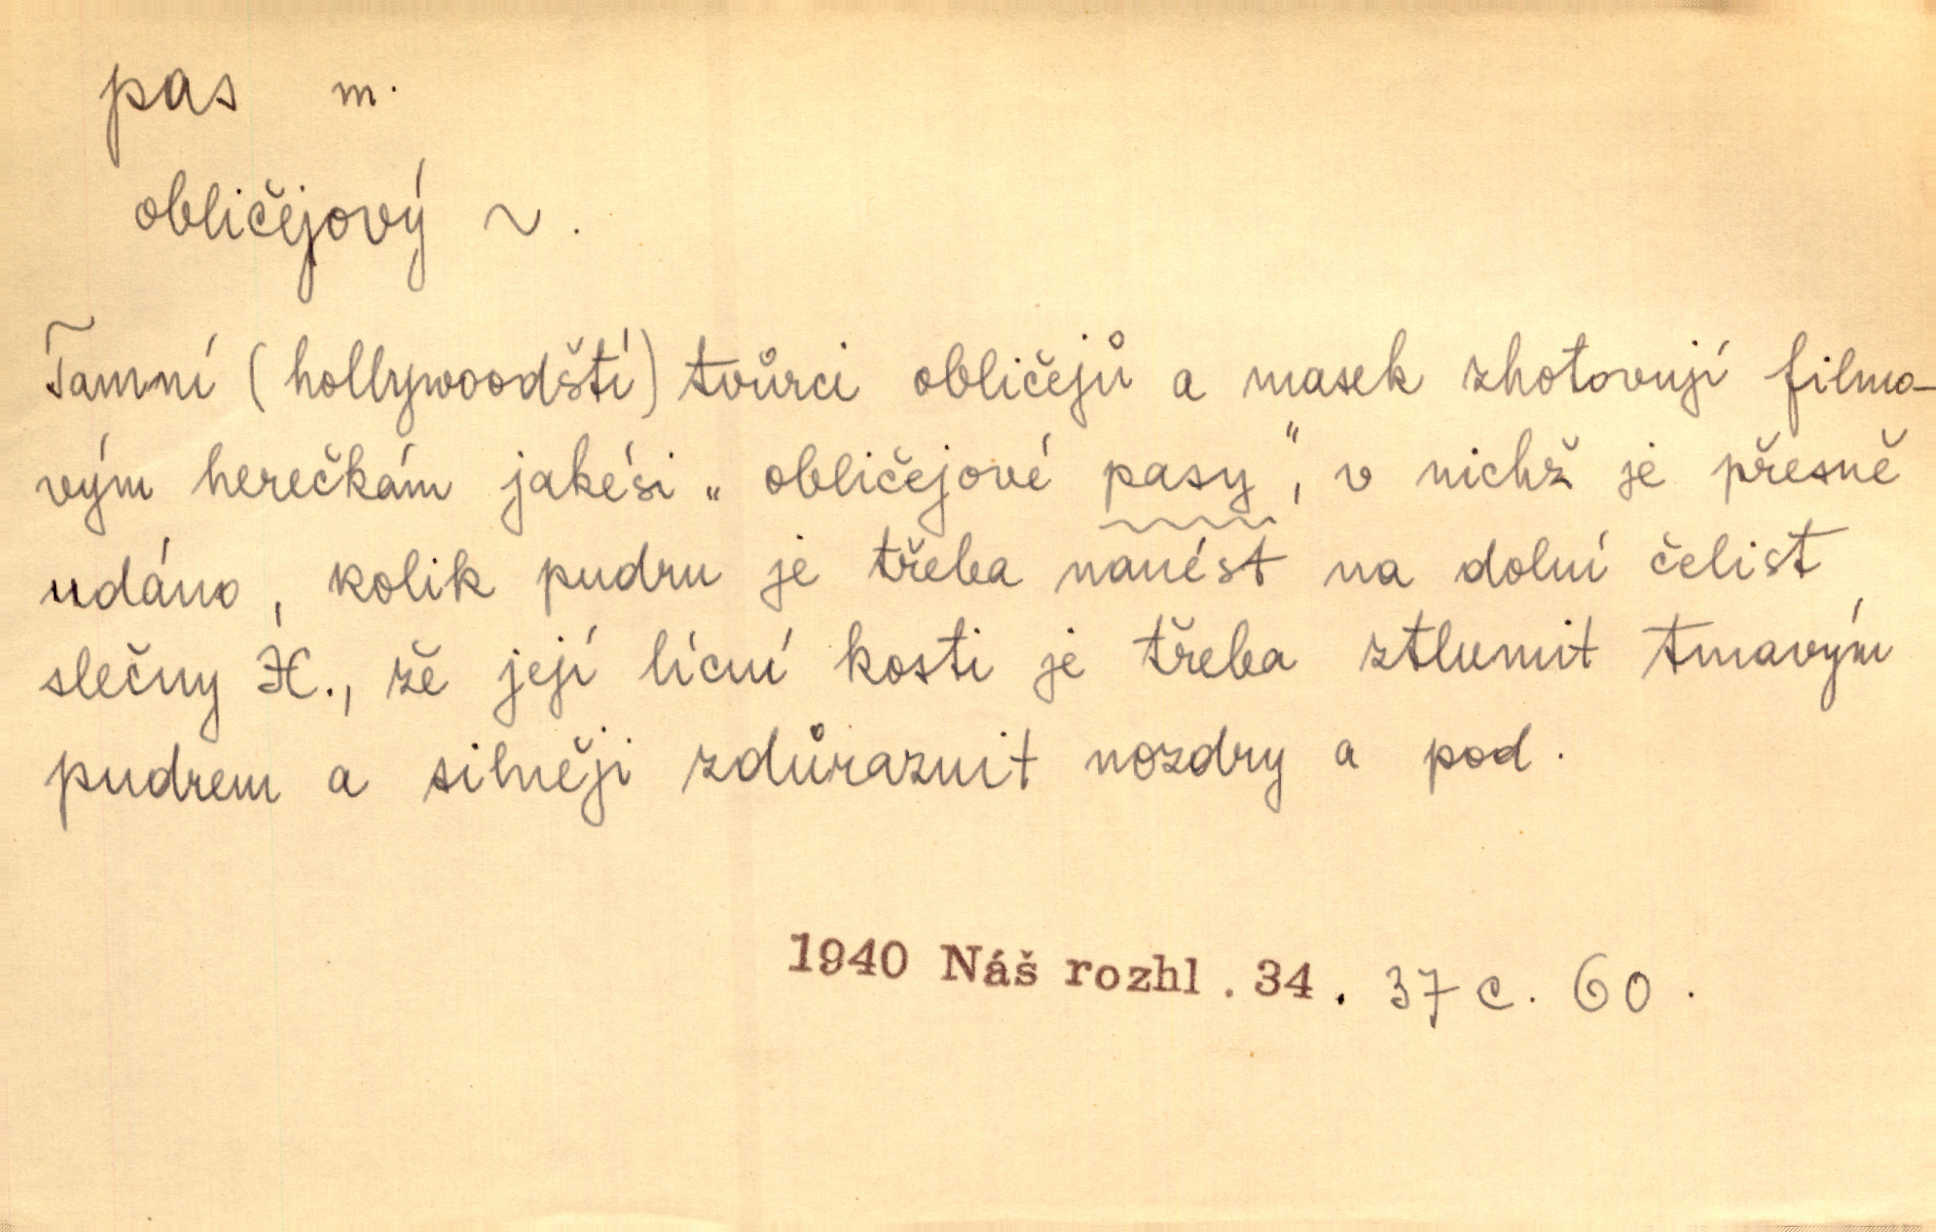 pas m.
obličejový ~.
Tamní (hollywoodští) tvůrci obličejů a masek zhotovují filmo-
vým herečkám jakési „obličejové pasy“, v nichž je přesně
udáno, kolik pudru je třeba nanést na dolní čelist
slečny X., že její lícní kosti je třeba ztlumit tmavým
pudrem a silněji zdůraznit nozdry a pod.
1940 Náš rozhl. 34. 37 c. 60.